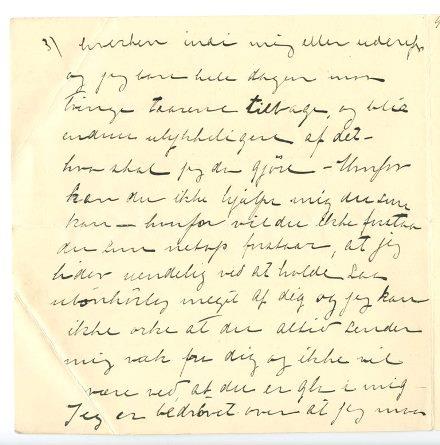 3) hverken indi mig eller udenfor
og jeg bare hele dagen maa
tvinge taarene tilbage, og blir
endnu ulykkeligere af det –
hva skal jeg da gjöre – Hvorfor
kan du ikke hjælpe mig du som
kan – hvorfor vil du ikke forstaa
du som netop forstaar, at jeg
lider uendelig ved at holde saa
ubönhörlig meget af dig og jeg kan
ikke orke at du altid sender
mig væk fra dig og ikke vil
være ved, at du er gla i mig –
Jeg er bedrövet over at jeg maa